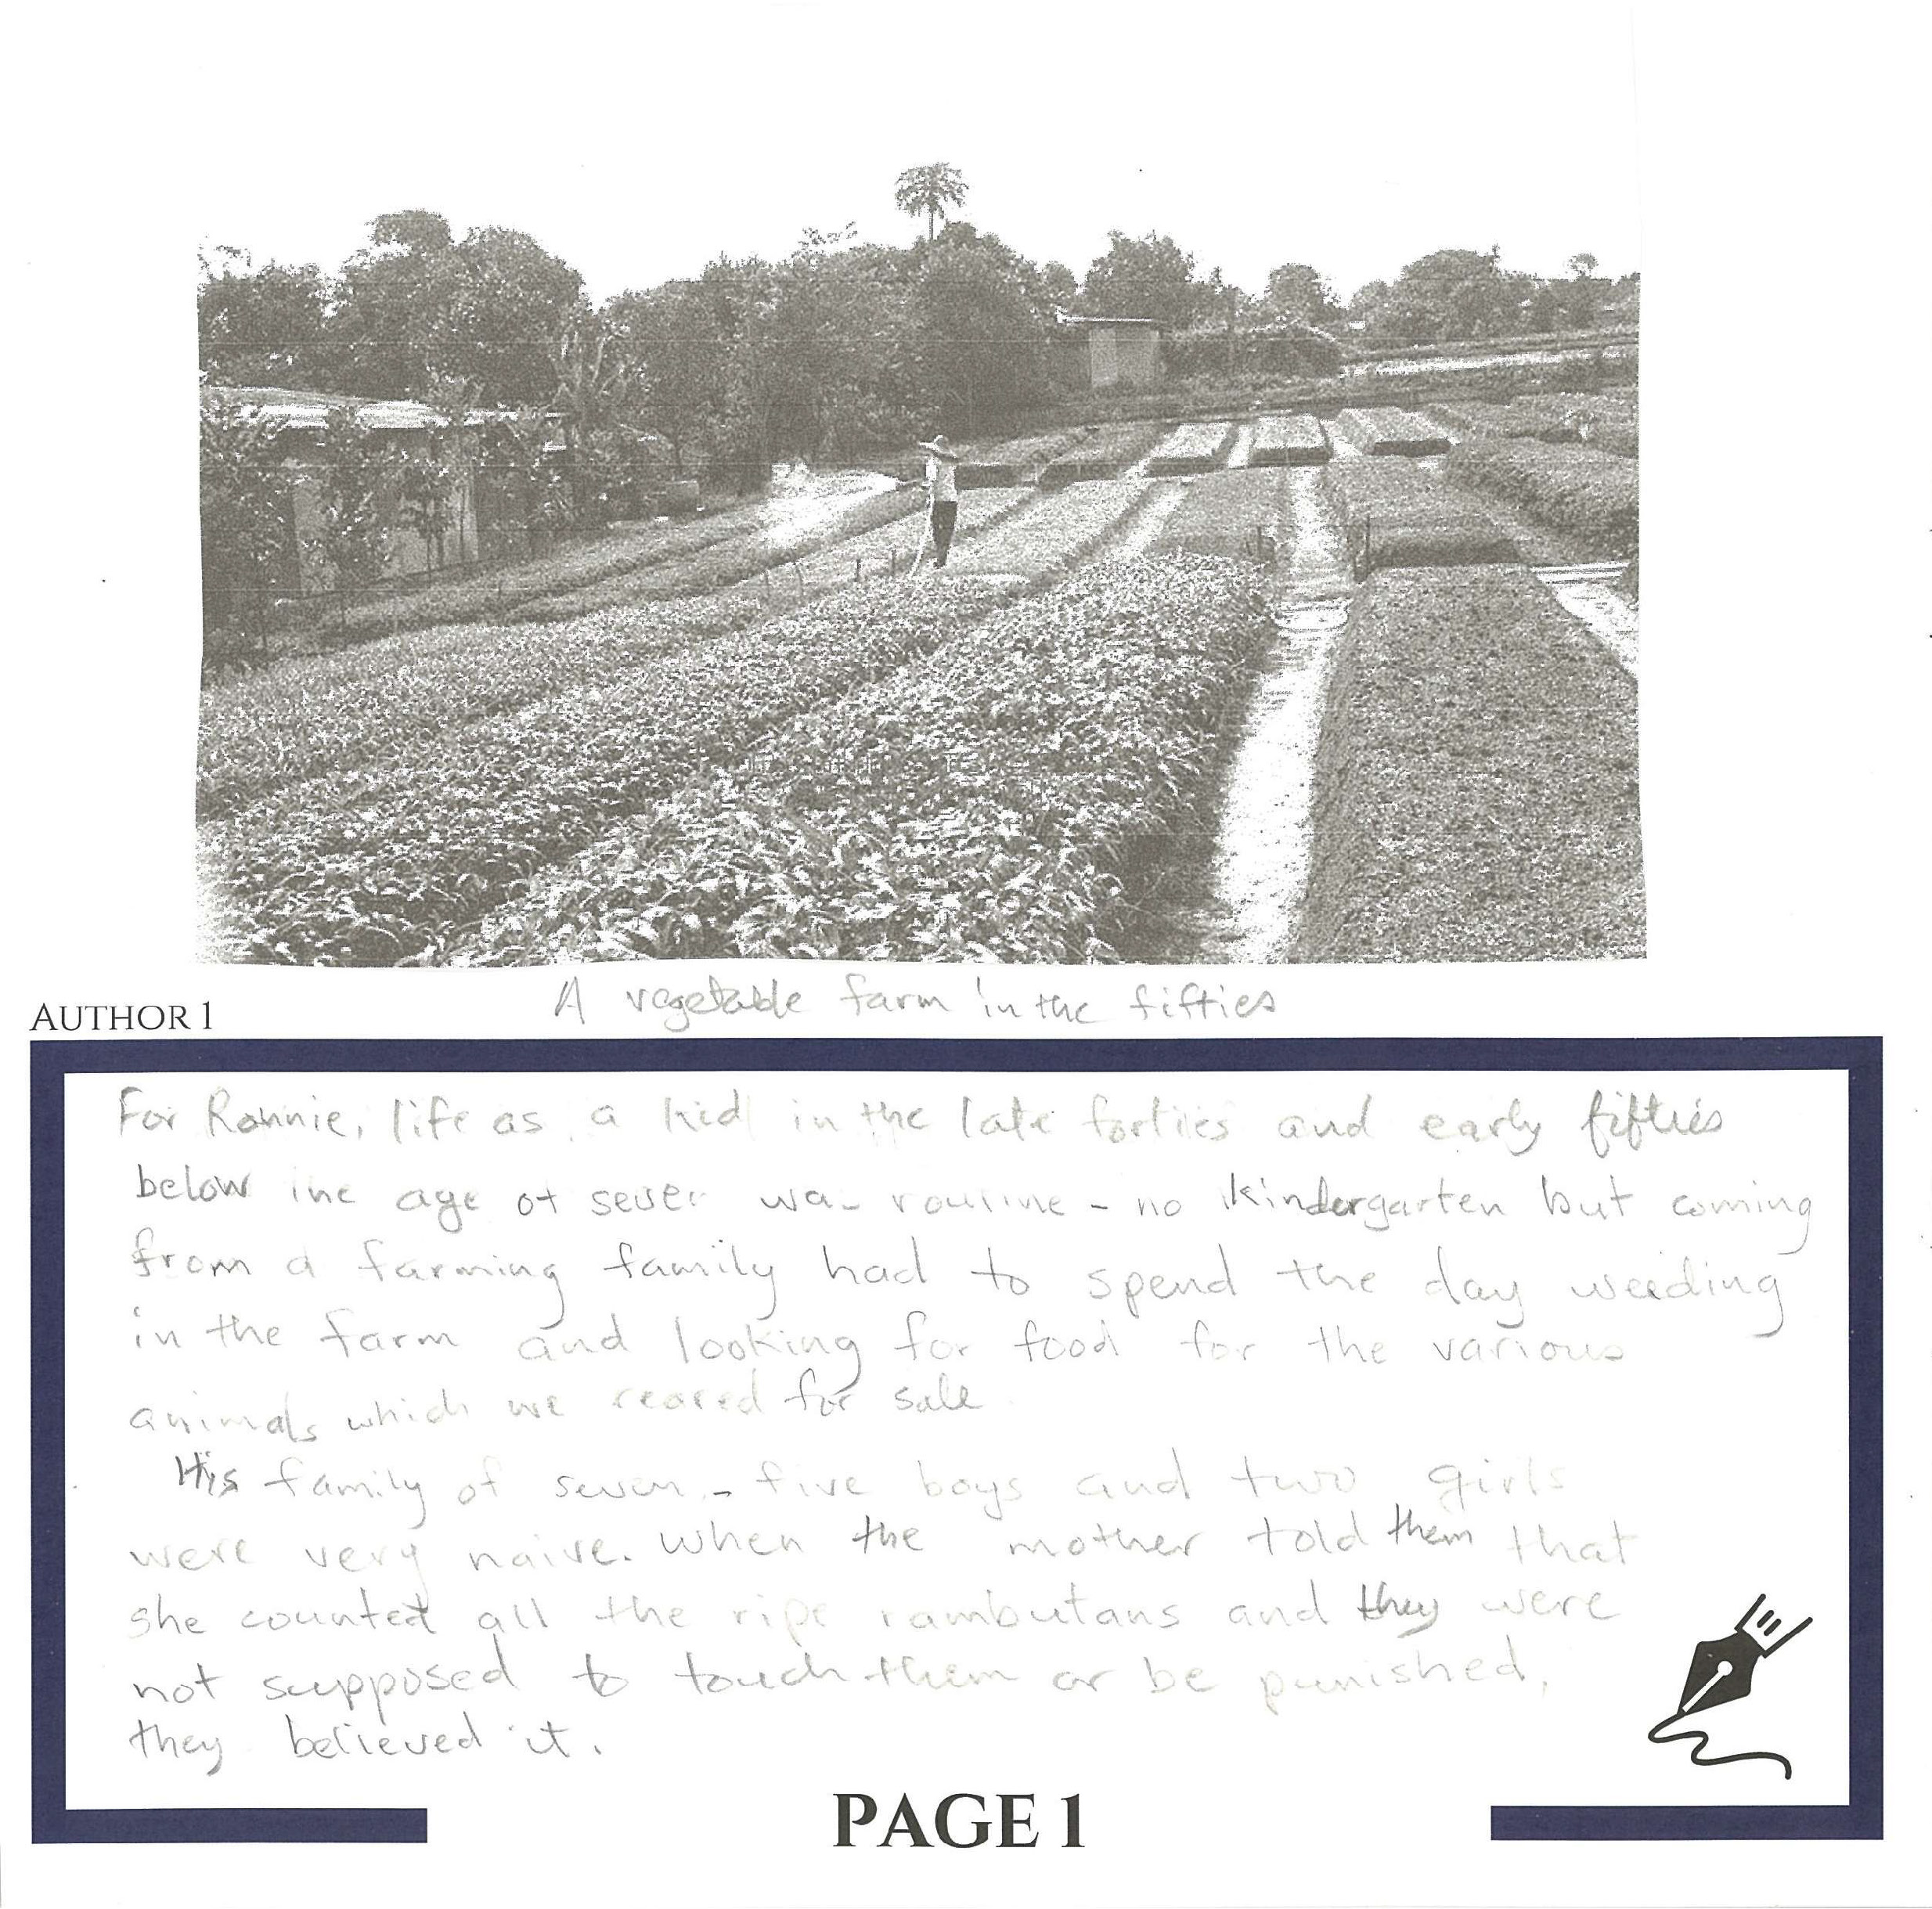 A vegetable farm in the fifties
AUTHOR 1
For Ronnie, life as a kid in the late forties and early fifties
below the age of seven was routine - no kindergarten but coming
from a farming family had to spend the day weeding
in the farm and looking for food for the various
animals which we reared for sale.
His family of seven - five boys and two girls
were very naive. When the mother told them that
she counted all the ripe rambutans and they were
not supposed to touch them or be punished,
they believed it.
PAGE 1